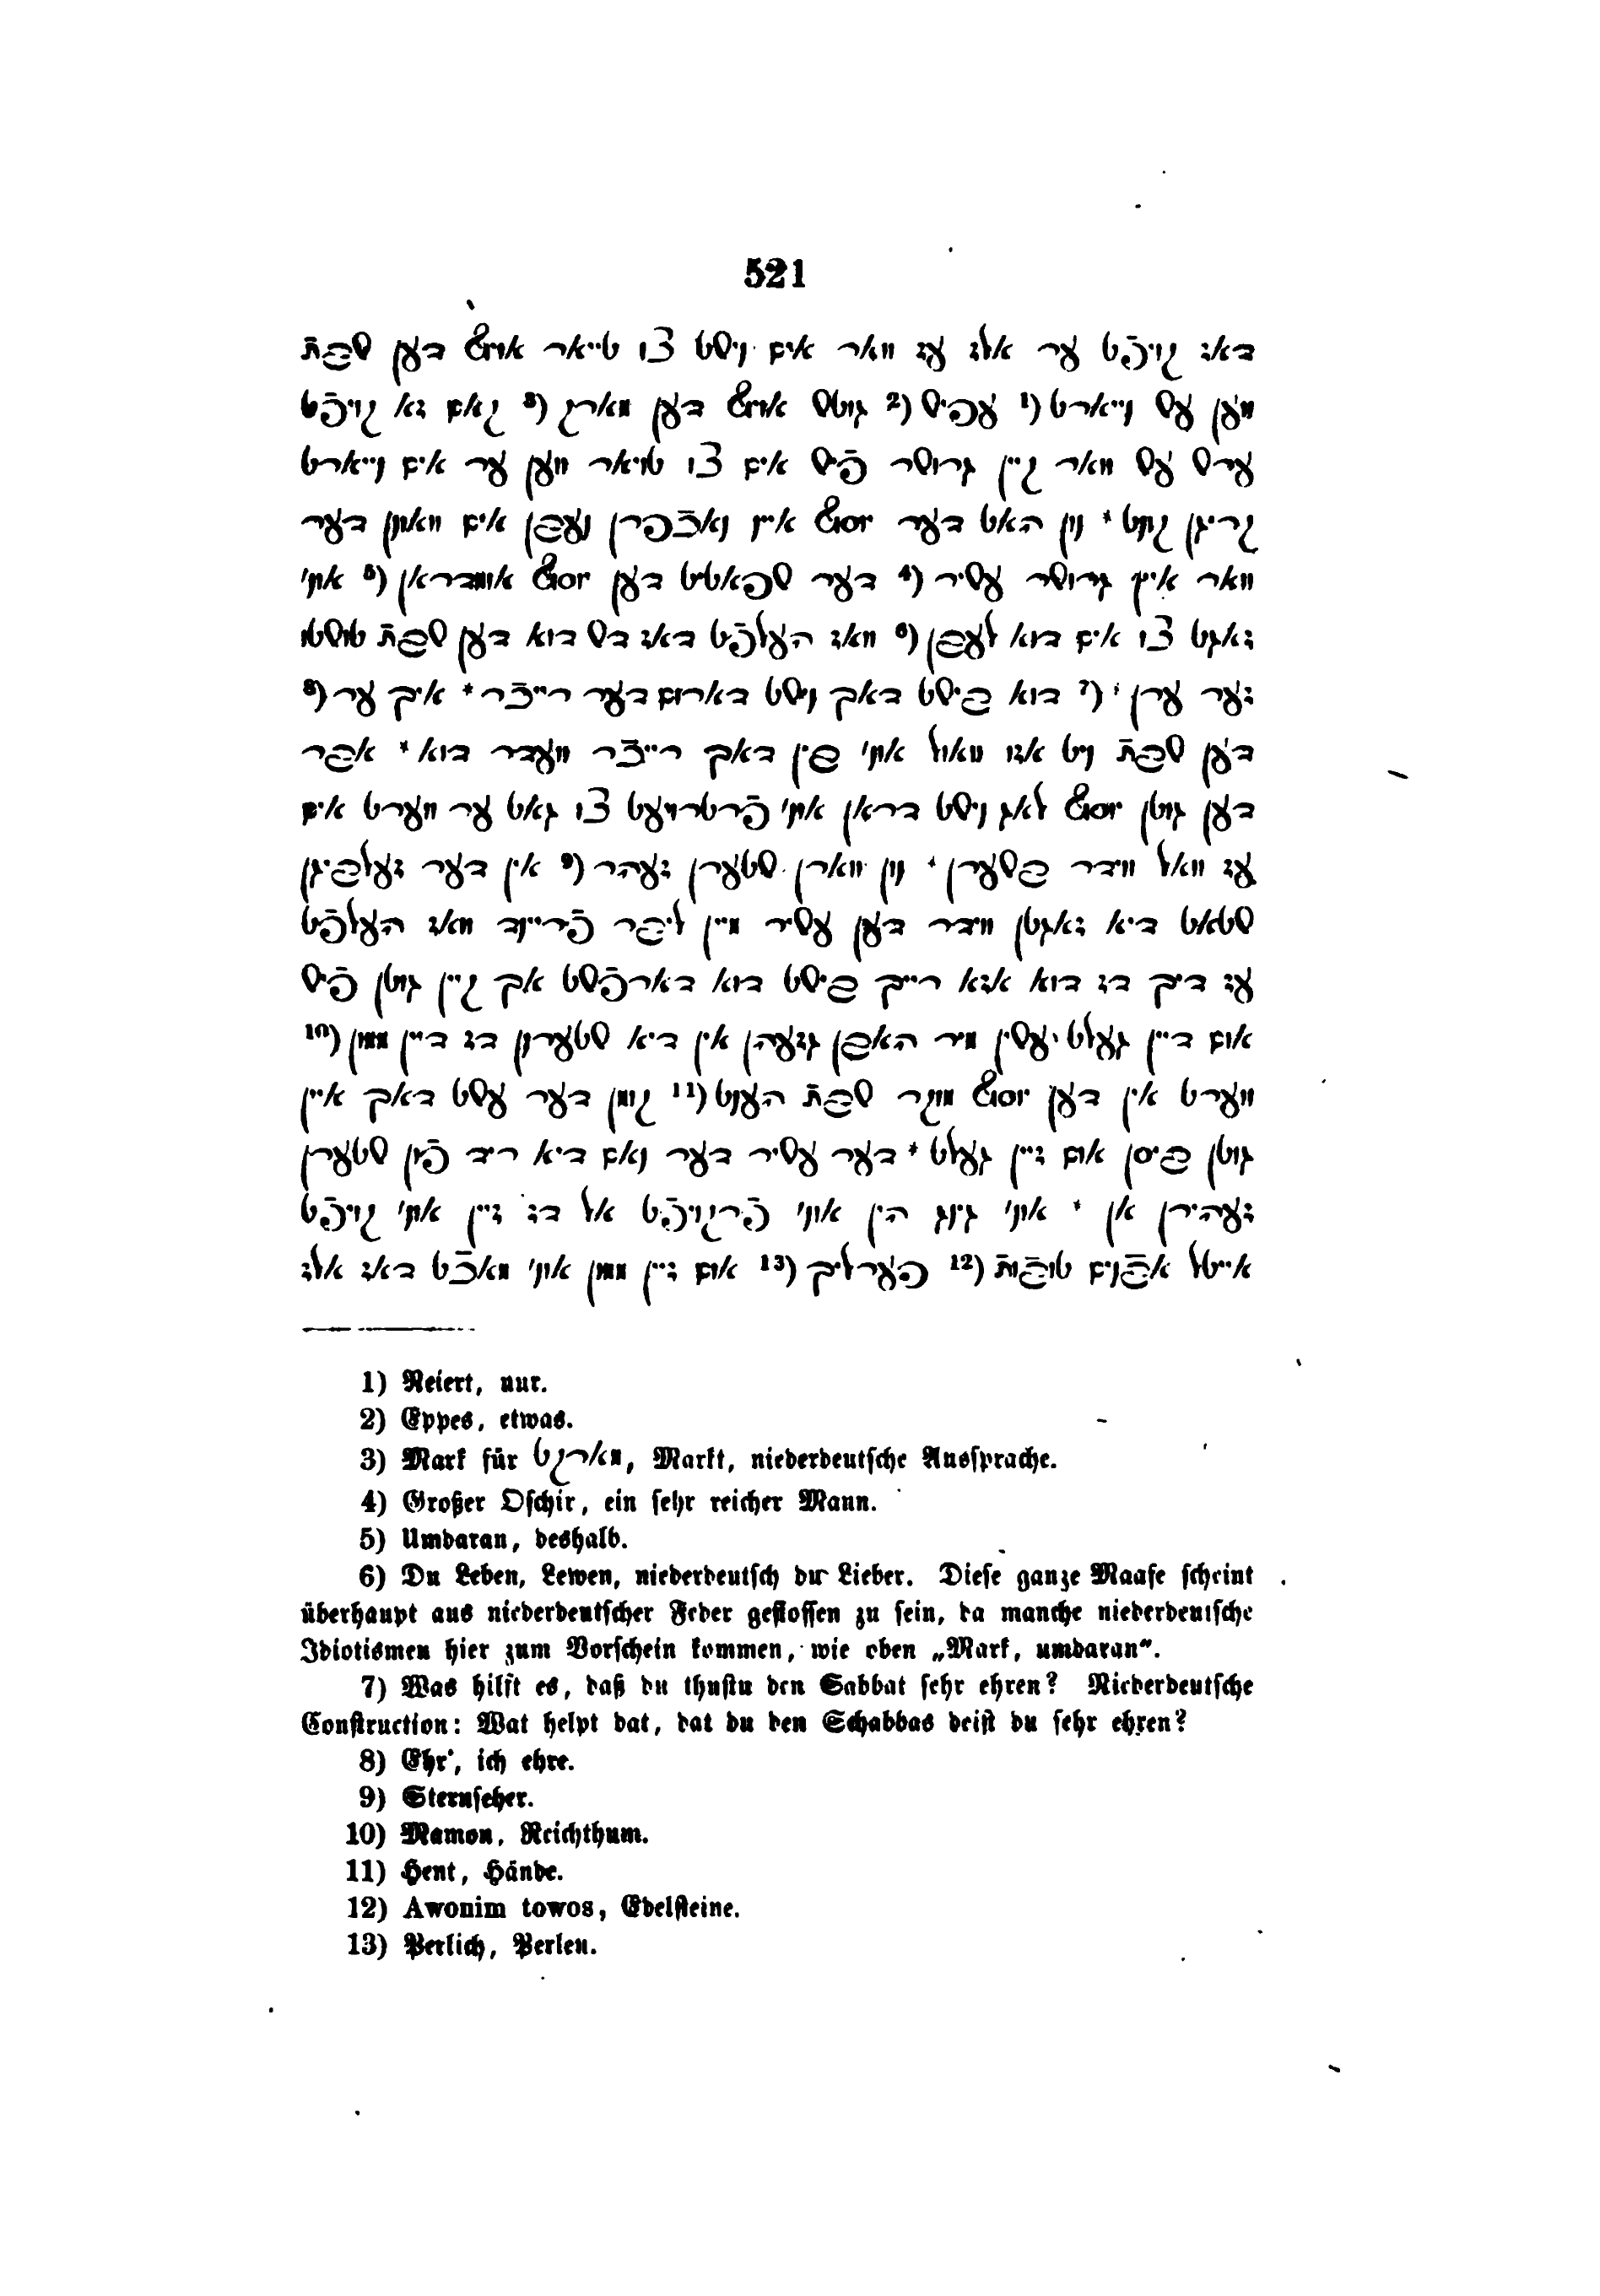 521
דאז קויפֿט ער אלז עז וואר אים ניסט צו טייאר אויף דען שבתֿ
ווען עש נייארט (¹ עפיש (² גוטש אויף דען מארק (³ קאם זא קויפֿט
ערש עש וואר קיין גרושר פֿיש אים צו טויאר ווען ער אים נייארט
קריגן קונט * נון האט דער יוסף איין נאכֿפרן נעבן אים וואונן דער
וואר איין גרושר עשיר (⁴ דער שפאטיט דען יוסף אומדראן (⁵ אונ׳
זאגט צו אים דוא לעבן (⁶ וואז העלפֿט דאז דש דוא דען שבתֿ טוסטו
זער ערן (⁷ דוא בישט דאך ניסט דארום דער רייכֿר * איך ער (⁸
דען שבתֿ ניט אזו וואול אונ׳ בין דאך רייכֿר וועדר דוא * אבר
דען גוטן יוסף לאג ניסט דראן אונ׳ פֿרטרויעט צו גאט ער ווערט אים
עז וואל ווידר בסערן * נון ווארן שטערן זעהר (⁹ אין דער זעלביגן
שטאט דיא זאגטן ווידר דען עשיר מיין ליבר פֿריינד וואז העלפֿט
עז דיך דז דוא אזא רייך בישט דוא דארפֿשט אך קיין גוטן פֿיש
אום דיין געלט עסין מיר האבן גזעהן אין דיא שטערנן דז דיין ממון (¹⁰
ווערט אין דען יוסף מוקר שבתֿ הענט (¹¹ קומן דער עסט דאך איין
גוטן ביסן אום זיין געלט * דער עשיר דער נאם דיא ריד פֿון שטערן
זעהירן אן * אונ׳ גינג הין אונ׳ פֿרקויפֿט אל דז זיין אונ׳ קויפֿט
אייטל אבֿנים טובֿותֿ (¹² פערליך (¹³ אום זיין ממון אונ׳ מאכֿט דאז אלז
1) Neiert, nur.
2) Eppes, etwas.
3) Mark für מארקט, Markt, niederdeutsche Aussprache.
4) Großer Oschir, ein sehr reicher Mann.
5) Umdaran, deshalb.
6) Du Leben, Lewen, niederdeutsch du Lieber. Diese ganze Maase scheint
überhaupt aus niederdeutscher Feder geflossen zu sein, da manche niederdeutsche
Idiotismen hier zum Vorschein kommen, wie oben „Mark, umdaran“.
7) Was hilft es, daß du thustu den Sabbat sehr ehren? Niederdeutsche
Construction: Wat helpt dat, dat du den Schabbas deist du sehr ehren?
8) Ehr', ich ehre.
9) Sternseher.
10) Mamon, Reichthum.
11) Hent, Hände.
12) Awonim towos, Edelsteine.
13) Perlich, Perlen.